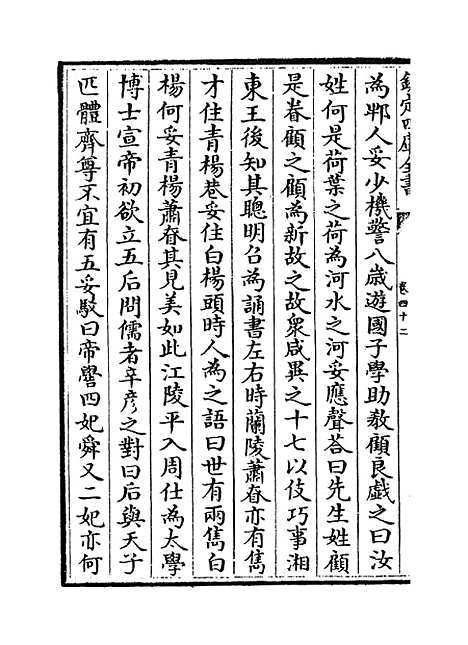 欽定四庫全書
卷四十二
為郫人妥少機警八歲遊國子學助教顧良戲之曰汝
姓何是荷葉之荷為河水之河妥應聲荅曰先生姓顧
是眷顧之顧為新故之故衆咸異之十七以伎巧事湘
東王後知其聰明召為誦書左右時蘭陵蕭眘亦有雋
才住青楊巷妥住白楊頭時人為之語曰世有兩雋白
楊何妥青楊蕭眘其見美如此江陵平入周仕為太學
博士宣帝初欲立五后問儒者辛彦之對曰后與天子
匹體齊尊不宜有五妥駁曰帝嚳四妃舜又二妃亦何